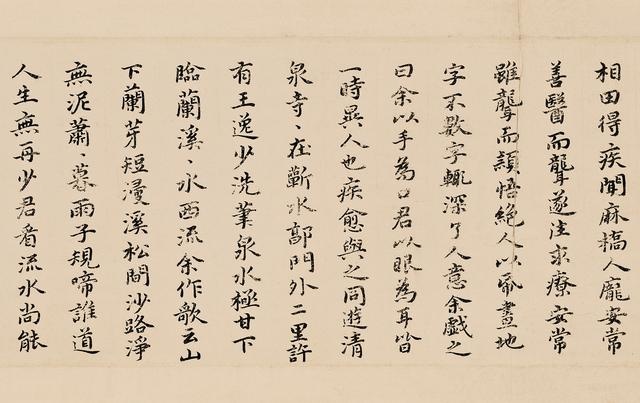 相田得疾聞麻橋人龐安常
善醫而聾遂往求療安常
雖聾而穎悟絕人以帋畫地
字不數字輒深了人意余戲之
曰余以手為口君以眼為耳皆
一時異人也疾愈與之同遊清
泉寺、在蘄水郭門外二里許
有王逸少洗筆泉水極甘下
臨蘭溪、水西流余作歌云山
下蘭芽短浸溪松間沙路淨
無泥蕭、暮雨子規啼誰道
人生無再少君看流水尚能